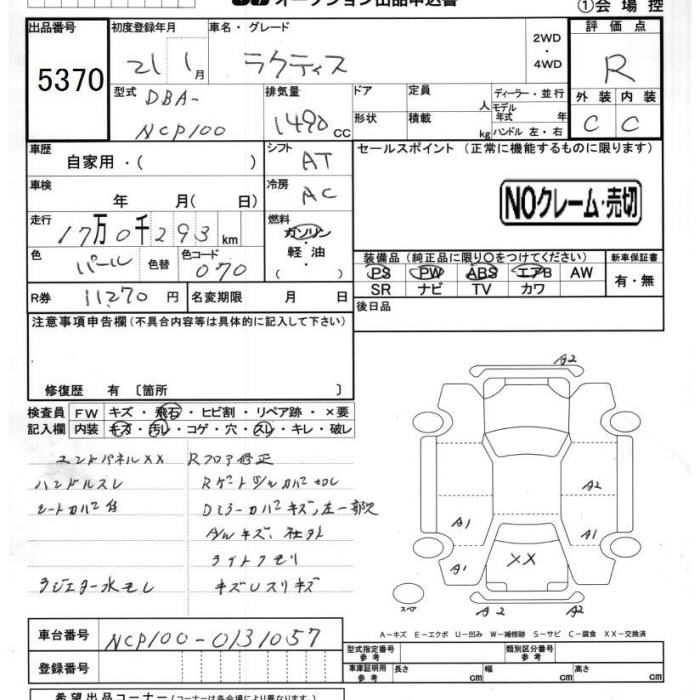 オークション出品申込書
①会場控
出品番号 初度登録年月 車名・グレード 2WD・4WD 評価点
5370 21 1月 ラクティス R
型式 DBA-NCP100 排気量 1490cc ドア 定員 人 ディーラー・並行 外装 内装
形状 積載 kg モデル年式 年 ハンドル 左・右 C C
車歴 自家用・( ) シフト AT セールスポイント (正常に機能するものに限ります)
車検 年 月( 日) 冷房 AC NOクレーム・売切
走行 17万0千293km 燃料 ガソリン・軽油
色 パール 色替 色コード 070 装備品 (純正品に限り○をつけてください) 新車保証書
PS PW ABS エアB AW 有・無
SR ナビ TV カワ
R券 11,270円 名変期限 月 日 後日品
注意事項申告欄 (不具合内容等は具体的に記入して下さい)
修復歴 有 〔箇所 〕
検査員記入欄 FW キズ・飛石・ヒビ割・リペア跡・×要
内装 キズ・汚レ・コゲ・穴・スレ・キレ・破レ
エンドパネルXX Rフロア修正
ハンドルスレ
シートカバー付
ライトクモリ
ラジエター水モレ キズUスリキズ
A2
A2
A1 A2
A1 XX A1
スペア A2 A2
A-キズ E-エクボ U-凹み W-補修跡 S-サビ C-腐食 XX-交換済
車台番号 NCP100-0131057 型式指定番号 参考 類別区分番号 参考
登録番号 車庫証明用 参考 長さ cm 幅 cm 高さ cm
希望出品コーナー (コーナーは各会場により異なります)